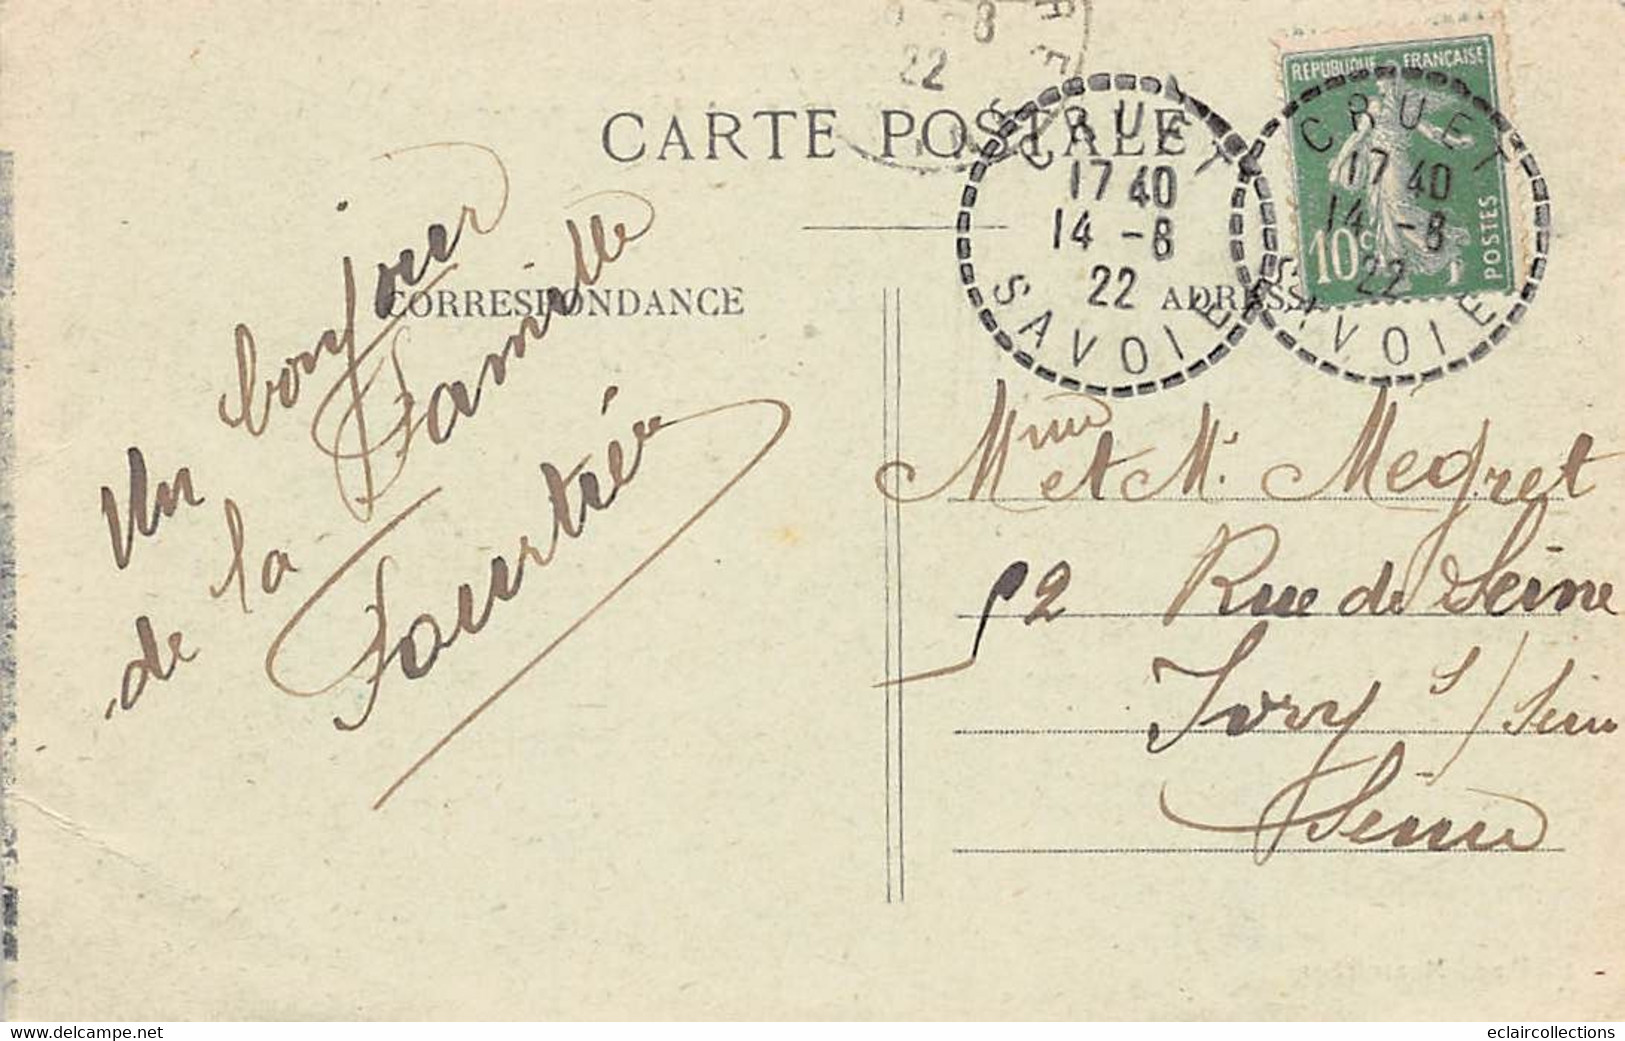 CARTE POSTALE
CORRESPONDANCE
ADRESSE
RÉPUBLIQUE FRANÇAISE
10c
POSTES
CRUET
17 40
14 -8
22
SAVOIE
CRUET
17 40
14 -8
22
SAVOIE
-8
22
Un bonjour
de la Famille
Fourtrée
Mme et M. Megret
52 Rue de Seine
Ivry s/ Seine
Seine
www.delcampe.net
eclaircollections